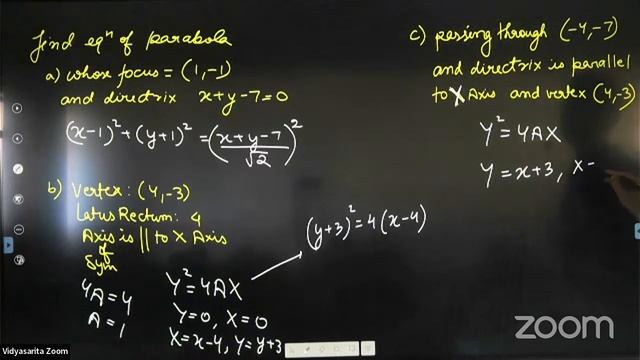 find eqⁿ of parabola
a) whose focus = (1,-1)
and directrix x+y-7=0
(x-1)² + (y+1)² = ((x+y-7)/√2)²
b) Vertex: (4,-3)
Latus Rectum: 4
Axis is || to X Axis
of
Sym
4A = 4
A = 1
Y² = 4AX
Y=0, X=0
X = x-4, Y = y+3
(y+3)² = 4(x-4)
c) passing through (-4,-7)
and directrix is parallel
to X Axis and vertex (4,-3)
Y² = 4AX
Y = x+3, X=
zoom
Vidyasarita Zoom